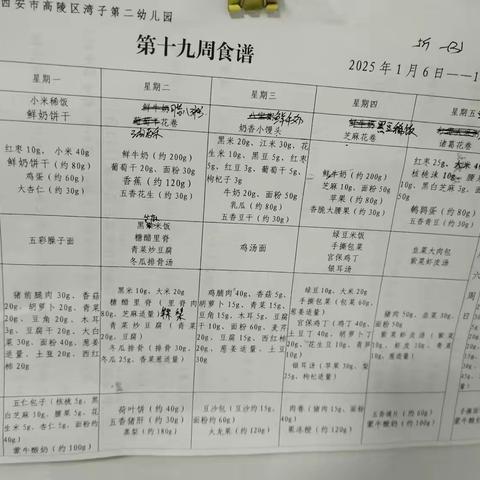 西安市高陵区湾子第二幼儿园
第十九周食谱
2025年1月6日——1
星期一
星期二
星期三
星期四
星期五
小米稀饭
鲜奶饼干
花卷
奶香小馒头
黑豆稀饭
芝麻花卷
诸葛花卷
红枣 10g、小米 40g
鲜奶饼干(约 80g)
鸡蛋(约 60g)
大杏仁(约 30g)
鲜牛奶(约 200g)
葡萄干 20g、面粉 30g
香蕉(约 120g)
五香花生(约 30g)
黑米 20g、江米 30g、花
生米 10g、黑豆 5g、红枣
5g、红豆 3g、葡萄干 5g、
枸杞子 3g
牛奶 20g、面粉 50g
乳瓜(约 80g)
五香豆干(约 30g)
鲜牛奶(约 200g)
芝麻 10g、面粉 50g
苹果(约 80g)
香脆大腰果(约 30g)
红枣 25g、
核桃沫 10g、
10g、黑白芝麻 3g、面
50g
鹌鹑蛋(约 80g)
五香青豆(约 30g)
五彩臊子面
米饭
糖醋里脊
青菜炒豆腐
冬瓜排骨汤
鸡汤面
绿豆米饭
手撕包菜
宫保鸡丁
银耳汤
韭菜大肉包
紫菜虾皮汤
猪前腿肉 30g、香菇
20g、胡萝卜 20g、青菜
20g、豆角 20g、木耳
3g、豆腐干 20g、大白
菜 30g、面粉 40g、葱姜
适量、土豆 20g、西红
柿 20g
黑米 10g、大米 20g
糖醋里脊(里脊肉
80g、芝麻适量)
青菜炒豆腐(青菜
20g、豆腐 20g)
冬瓜排骨(排骨 30g、
冬瓜 25g、香菜适量)
鸡腿肉 40g、香菇 5g、
胡萝卜 15g、青菜 15g、
豆角 15g、木耳 5g、豆腐
干 10g、面粉 60g、麦芹
20g、豆腐 15g、西红柿
20g、葱姜适量、土豆
30g
绿豆 10g、大米 20g
手撕包菜(包菜 60g、
葱姜适量)
宫保鸡丁(鸡丁 40g、
黄瓜丁 40g、胡萝卜丁
20g、花生豆 10g、青笋
10g)
银耳汤(苹果 30g、梨
25g、枸杞适量)
猪肉 50g、韭菜 30g、
面粉 50g
紫菜虾皮汤(紫菜
10g、虾皮 10g、青菜
10g、葱花适量)
五仁包子(核桃 5g、黑
白芝麻 10g、腰果 5g、花
生米 5g、杏仁 5g、面粉约
40g)
蒙牛酸奶(约 100g)
荷叶饼(约 40g)
五香猪肝(约 30g)
蒸梨(约 180g)
豆沙包(豆沙约 15g、
面粉约 60g)
火龙果(约 120g)
肉卷(猪肉约 15g、面
粉约 40g)
果冻橙(约 120g)
(约 60g)
蒙牛酸奶(约 100g)